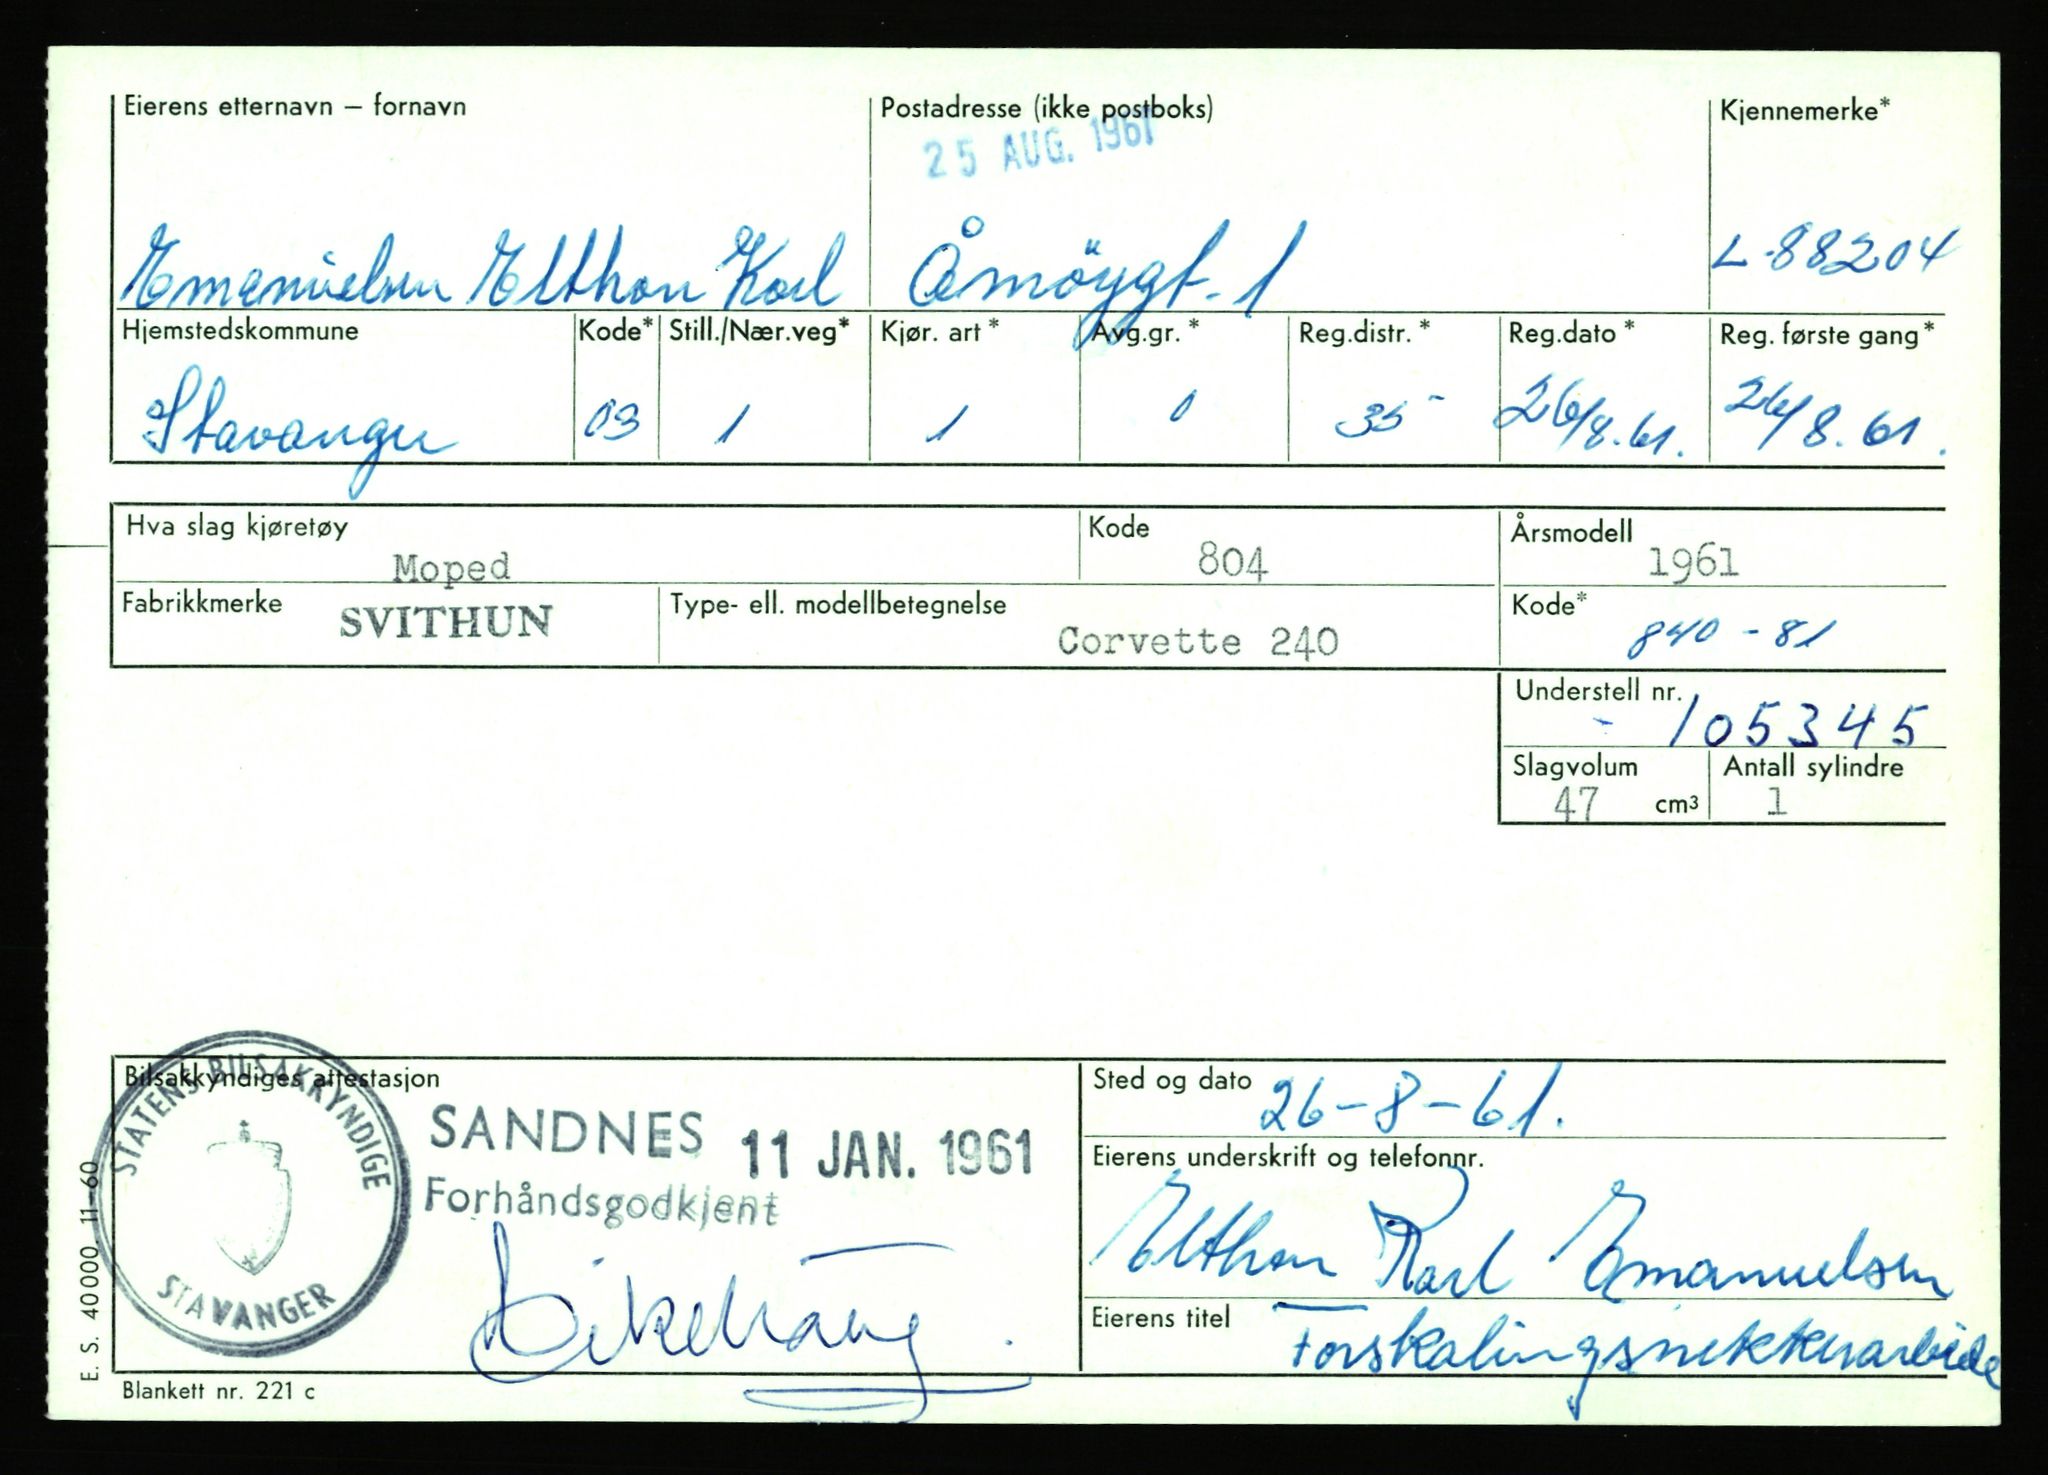 Eierens etternavn – fornavn Postadresse (ikke postboks) Kjennemerke*
25 AUG. 1961
Emanuelsen Elthon Karl Åmöygt. 1 L-88204
Hjemstedskommune Kode* Still./Nær.veg* Kjør. art* Avg.gr.* Reg.distr.* Reg.dato* Reg. første gang*
Stavanger 03 1 1 0 35 26/8.61. 26/8.61.
Hva slag kjøretøy Kode Årsmodell
Moped 804 1961
Fabrikkmerke SVITHUN Type- ell. modellbetegnelse Kode*
Corvette 240 840-81
Understell nr.
105345
Slagvolum Antall sylindre
47 cm3 1
Bilsakkyndiges attestasjon
STATENS BILSAKKYNDIGE
STAVANGER
SANDNES 11 JAN. 1961
Forhåndsgodkjent
Sted og dato 26-8-61.
Eierens underskrift og telefonnr.
Elthon Karl Emanuelsen
Eierens titel Forskalingsnekkerarbeide
E. S. 40000. 11-60
Blankett nr. 221 c